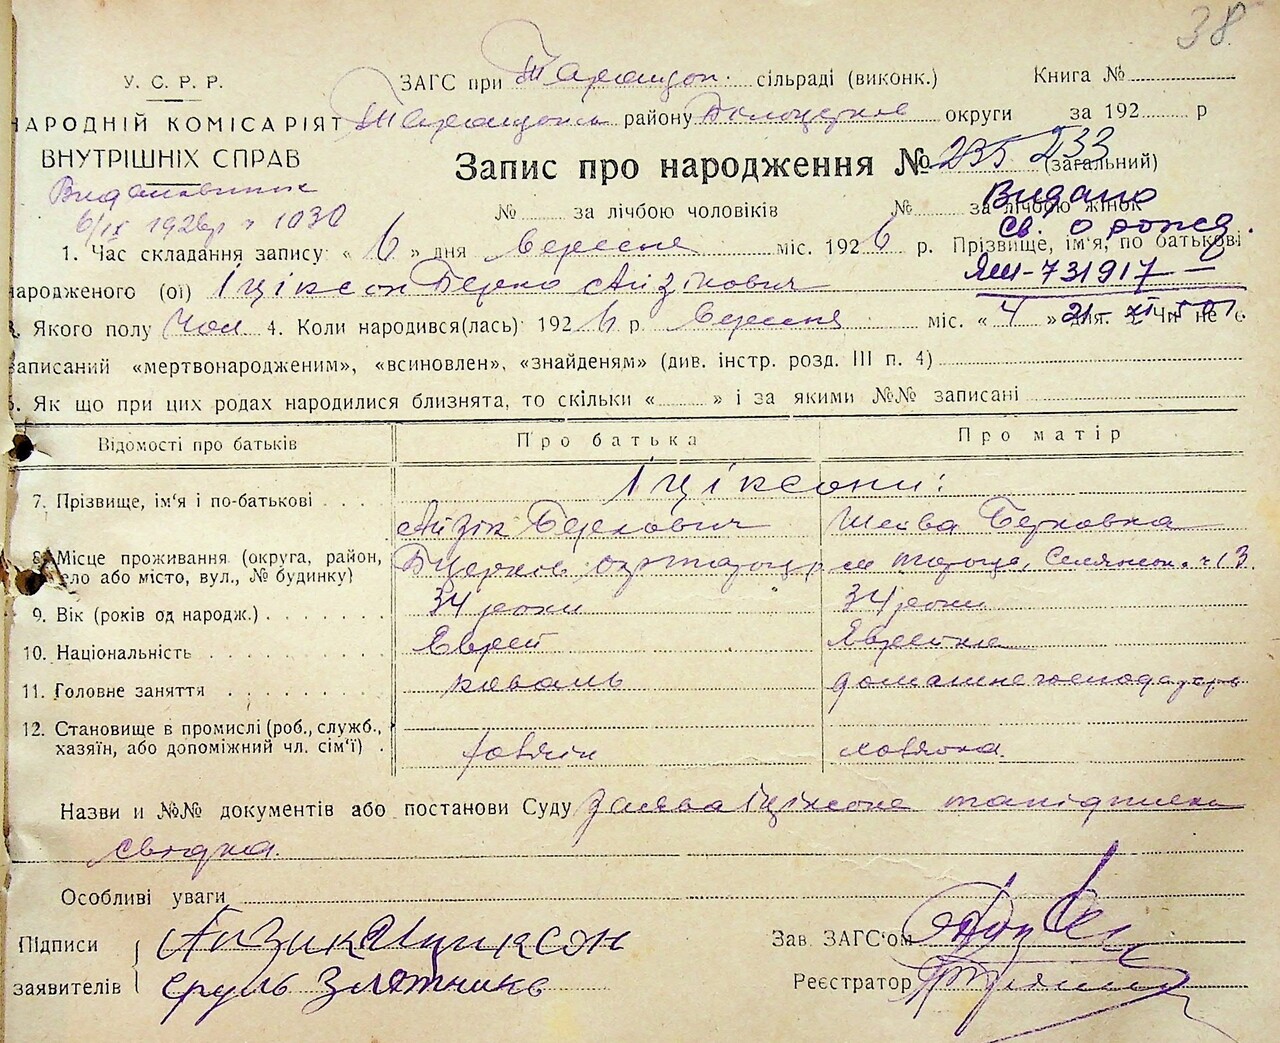 38.
У.С.Р.Р. ЗАГС при Таращан. сільраді (виконк.) Книга №
НАРОДНІЙ КОМІСАРІЯТ Таращанск району Білоцерков округи за 192 р
ВНУТРІШНІХ СПРАВ
Запис про народження № 235 233 (загальний)
6/ІХ 1926р № 1030
№ за лічбою чоловіків № за лічбою жінок
Видано
св. о рожд.
1. Час складання запису: « 6 » дня вересня міс. 1926 р. Прізвище, ім'я, по батькові
народженого (ої) Іціксон Берко Айзікович
ЯШ-731917
Якого полу чол 4. Коли народився(лась) 1926 р. вересня міс. « 4 » дня. Чи не є
записаний «мертвонародженим», «всиновлен», «знайденям» (див. інстр. розд. III п. 4)
Як що при цих родах народилися близнята, то скільки « » і за якими №№ записані
Відомості про батьків Про батька Про матір
Іціксони:
7. Прізвище, ім'я і по-батькові Айзік Беркович Шейва Берковна
8. Місце проживання (округа, район,
село або місто, вул., № будинку) м Тараща, Селянськ. ч 13.
9. Вік (років од народж.) 34 роки 34 роки
10. Національність Єврей Єврейка
11. Головне заняття коваль домашнє господар
12. Становище в промислі (роб., служб.,
хазяїн, або допоміжний чл. сім'ї)
Назви и №№ документів або постанови Суду Заява Іціксона та підписка
свідка.
Особливі уваги
Підписи Айзик Ициксон Зав. ЗАГС'ом
заявителів Сруль Злотник Реєстратор